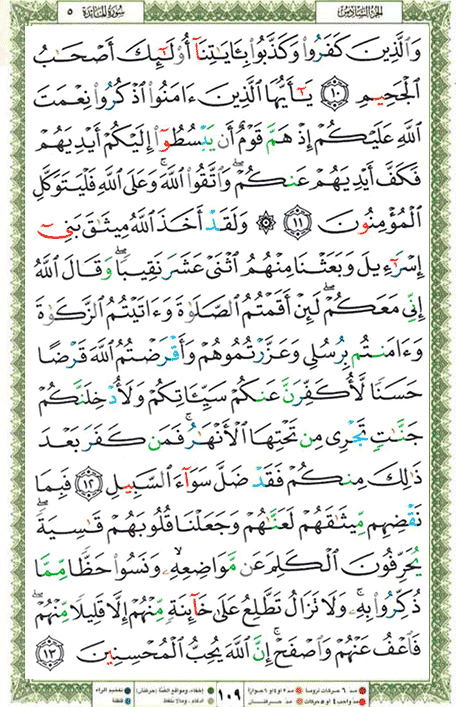 الجزء السادس سورة المائدة ٥
وَٱلَّذِينَ كَفَرُوا۟ وَكَذَّبُوا۟ بِـَٔايَـٰتِنَآ أُو۟لَـٰٓئِكَ أَصْحَـٰبُ
ٱلْجَحِيمِ ١٠ يَـٰٓأَيُّهَا ٱلَّذِينَ ءَامَنُوا۟ ٱذْكُرُوا۟ نِعْمَتَ
ٱللَّهِ عَلَيْكُمْ إِذْ هَمَّ قَوْمٌ أَن يَبْسُطُوٓا۟ إِلَيْكُمْ أَيْدِيَهُمْ
فَكَفَّ أَيْدِيَهُمْ عَنكُمْ ۖ وَٱتَّقُوا۟ ٱللَّهَ ۚ وَعَلَى ٱللَّهِ فَلْيَتَوَكَّلِ
ٱلْمُؤْمِنُونَ ١١ ۞ وَلَقَدْ أَخَذَ ٱللَّهُ مِيثَـٰقَ بَنِىٓ
إِسْرَٰٓءِيلَ وَبَعَثْنَا مِنْهُمُ ٱثْنَىْ عَشَرَ نَقِيبًا ۖ وَقَالَ ٱللَّهُ
إِنِّى مَعَكُمْ ۖ لَئِنْ أَقَمْتُمُ ٱلصَّلَوٰةَ وَءَاتَيْتُمُ ٱلزَّكَوٰةَ
وَءَامَنتُم بِرُسُلِى وَعَزَّرْتُمُوهُمْ وَأَقْرَضْتُمُ ٱللَّهَ قَرْضًا
حَسَنًا لَّأُكَفِّرَنَّ عَنكُمْ سَيِّـَٔاتِكُمْ وَلَأُدْخِلَنَّكُمْ
جَنَّـٰتٍ تَجْرِى مِن تَحْتِهَا ٱلْأَنْهَـٰرُ ۚ فَمَن كَفَرَ بَعْدَ
ذَٰلِكَ مِنكُمْ فَقَدْ ضَلَّ سَوَآءَ ٱلسَّبِيلِ ١٢ فَبِمَا
نَقْضِهِم مِّيثَـٰقَهُمْ لَعَنَّـٰهُمْ وَجَعَلْنَا قُلُوبَهُمْ قَـٰسِيَةً ۖ
يُحَرِّفُونَ ٱلْكَلِمَ عَن مَّوَاضِعِهِۦ ۙ وَنَسُوا۟ حَظًّا مِّمَّا
ذُكِّرُوا۟ بِهِۦ ۚ وَلَا تَزَالُ تَطَّلِعُ عَلَىٰ خَآئِنَةٍ مِّنْهُمْ إِلَّا قَلِيلًا مِّنْهُمْ ۖ
فَٱعْفُ عَنْهُمْ وَٱصْفَحْ ۚ إِنَّ ٱللَّهَ يُحِبُّ ٱلْمُحْسِنِينَ ١٣
١٠٩